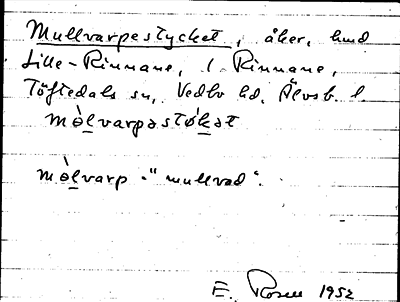 Mullvarpestycket, åker, hmd
Lille-Rinnane, 1 Rinnane,
Töftedals sn, Vedbo hd, Älvsb. l.
mòlvarpəstøkət
mòlvarp "mullvad".
E. Rosell 1952